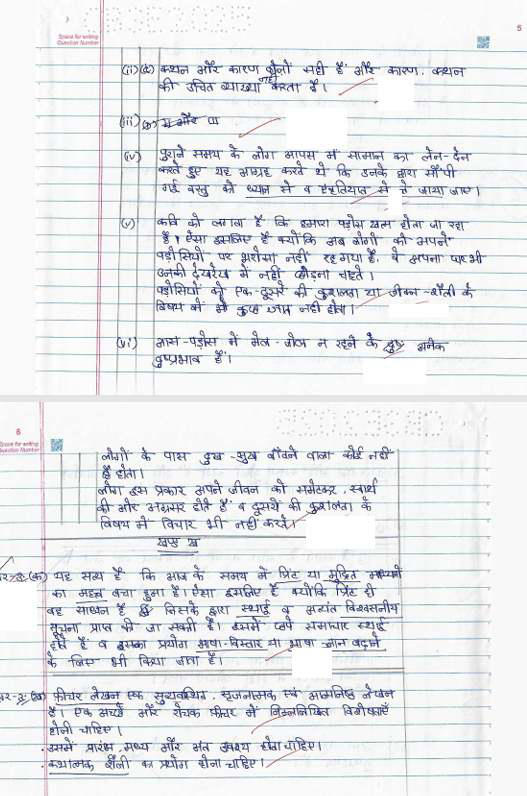 5
Space for writing
Question Number
(ii) (d) कथन और कारण दोनों सही हैं और कारण, कथन
की उचित व्याख्या नहीं करता है।
(iii) III
(iv) पुराने समय के लोग आपस में सामान का लेन-देन
करते हुए यह आग्रह करते थे कि उनके द्वारा सौंपी
गई वस्तु को ध्यान से व एहतियात से ले जाया जाए।
(v) कवि को लगता है कि हमारा पड़ोस खत्म होता जा रहा
है। ऐसा इसलिए है क्योंकि अब लोगों को अपने
पड़ोसियों पर भरोसा नहीं रह गया है, वे अपना घर भी
उनकी देखरेख में नहीं छोड़ना चाहते।
पड़ोसियों को एक-दूसरे की कुशलता या जीवन-शैली के
विषय में भी कुछ ज्ञात नहीं होता।
(vi) आस-पड़ोस में मेल-जोल न रहने के अनेक
दुष्प्रभाव हैं।
6
Space for writing
Question Number
लोगों के पास दुख-सुख बाँटने वाला कोई नहीं
होता।
लोग इस प्रकार अपने जीवन को समेटकर, स्वार्थ
की ओर अग्रसर होते हैं व दूसरों की कुशलता के
विषय में विचार भी नहीं करते।
खण्ड ख
(क) यह सत्य है कि आज के समय में प्रिंट या मुद्रित माध्यमों
का महत्व बचा हुआ है। ऐसा इसलिए है क्योंकि प्रिंट ही
वह साधन है जिसके द्वारा स्थाई व अत्यंत विश्वसनीय
सूचना प्राप्त की जा सकती है। इसमें छपे समाचार स्थाई
होते हैं व इसका प्रयोग भाषा-विस्तार या भाषा ज्ञान बढ़ाने
के लिए भी किया जाता है।
(ख) फ़ीचर लेखन एक सुव्यवस्थित, सृजनात्मक एवं आत्मनिष्ठ लेखन
है। एक अच्छे और रोचक फ़ीचर में निम्नलिखित विशेषताएँ
होनी चाहिए।
• उसमें प्रारंभ, मध्य और अंत अवश्य होना चाहिए।
• कथात्मक शैली का प्रयोग होना चाहिए।